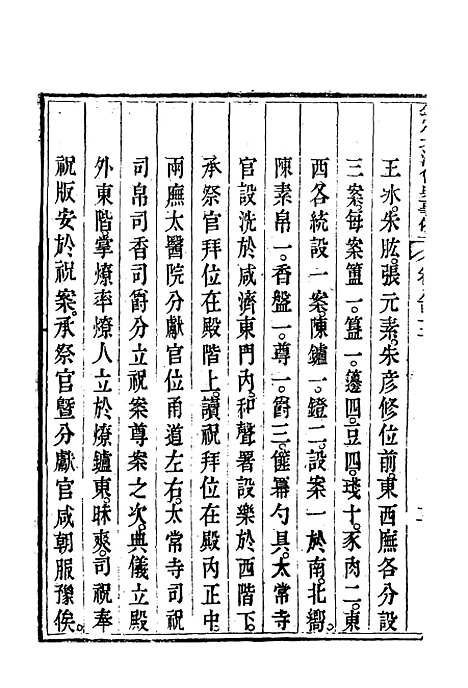 王冰朱肱張元素朱彥修位前東西廡各分設
三案每案簠一簋一籩四豆四琖十豕肉二東
西各統設一案陳鑪一鐙二設案一於南北嚮
陳素帛一香盤一尊一爵三篚冪勺具太常寺
官設洗於咸濟東門內和聲署設樂於西階下
承祭官拜位在殿階上讀祝拜位在殿內正中
兩廡太醫院分獻官位甬道左右太常寺司祝
司帛司香司爵分立祝案尊案之次典儀立殿
外東階掌燎率燎人立於燎鑪東昧爽司祝奉
祝版安於祝案承祭官暨分獻官咸朝服豫俟